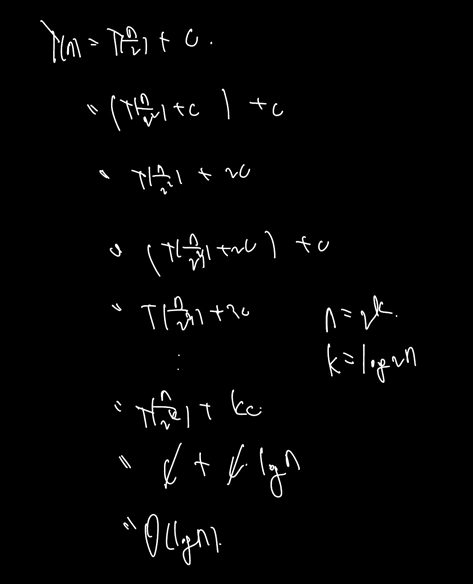 T(n) = T(n/2) + c.
= (T(n/2²) + c) + c
= T(n/2²) + 2c
= (T(n/2³) + 2c) + c
= T(n/2³) + 3c
n = 2^k.
⋮
k = log₂n
= T(n/2^k) + kc
= c + c · lgn
= O(lgn).